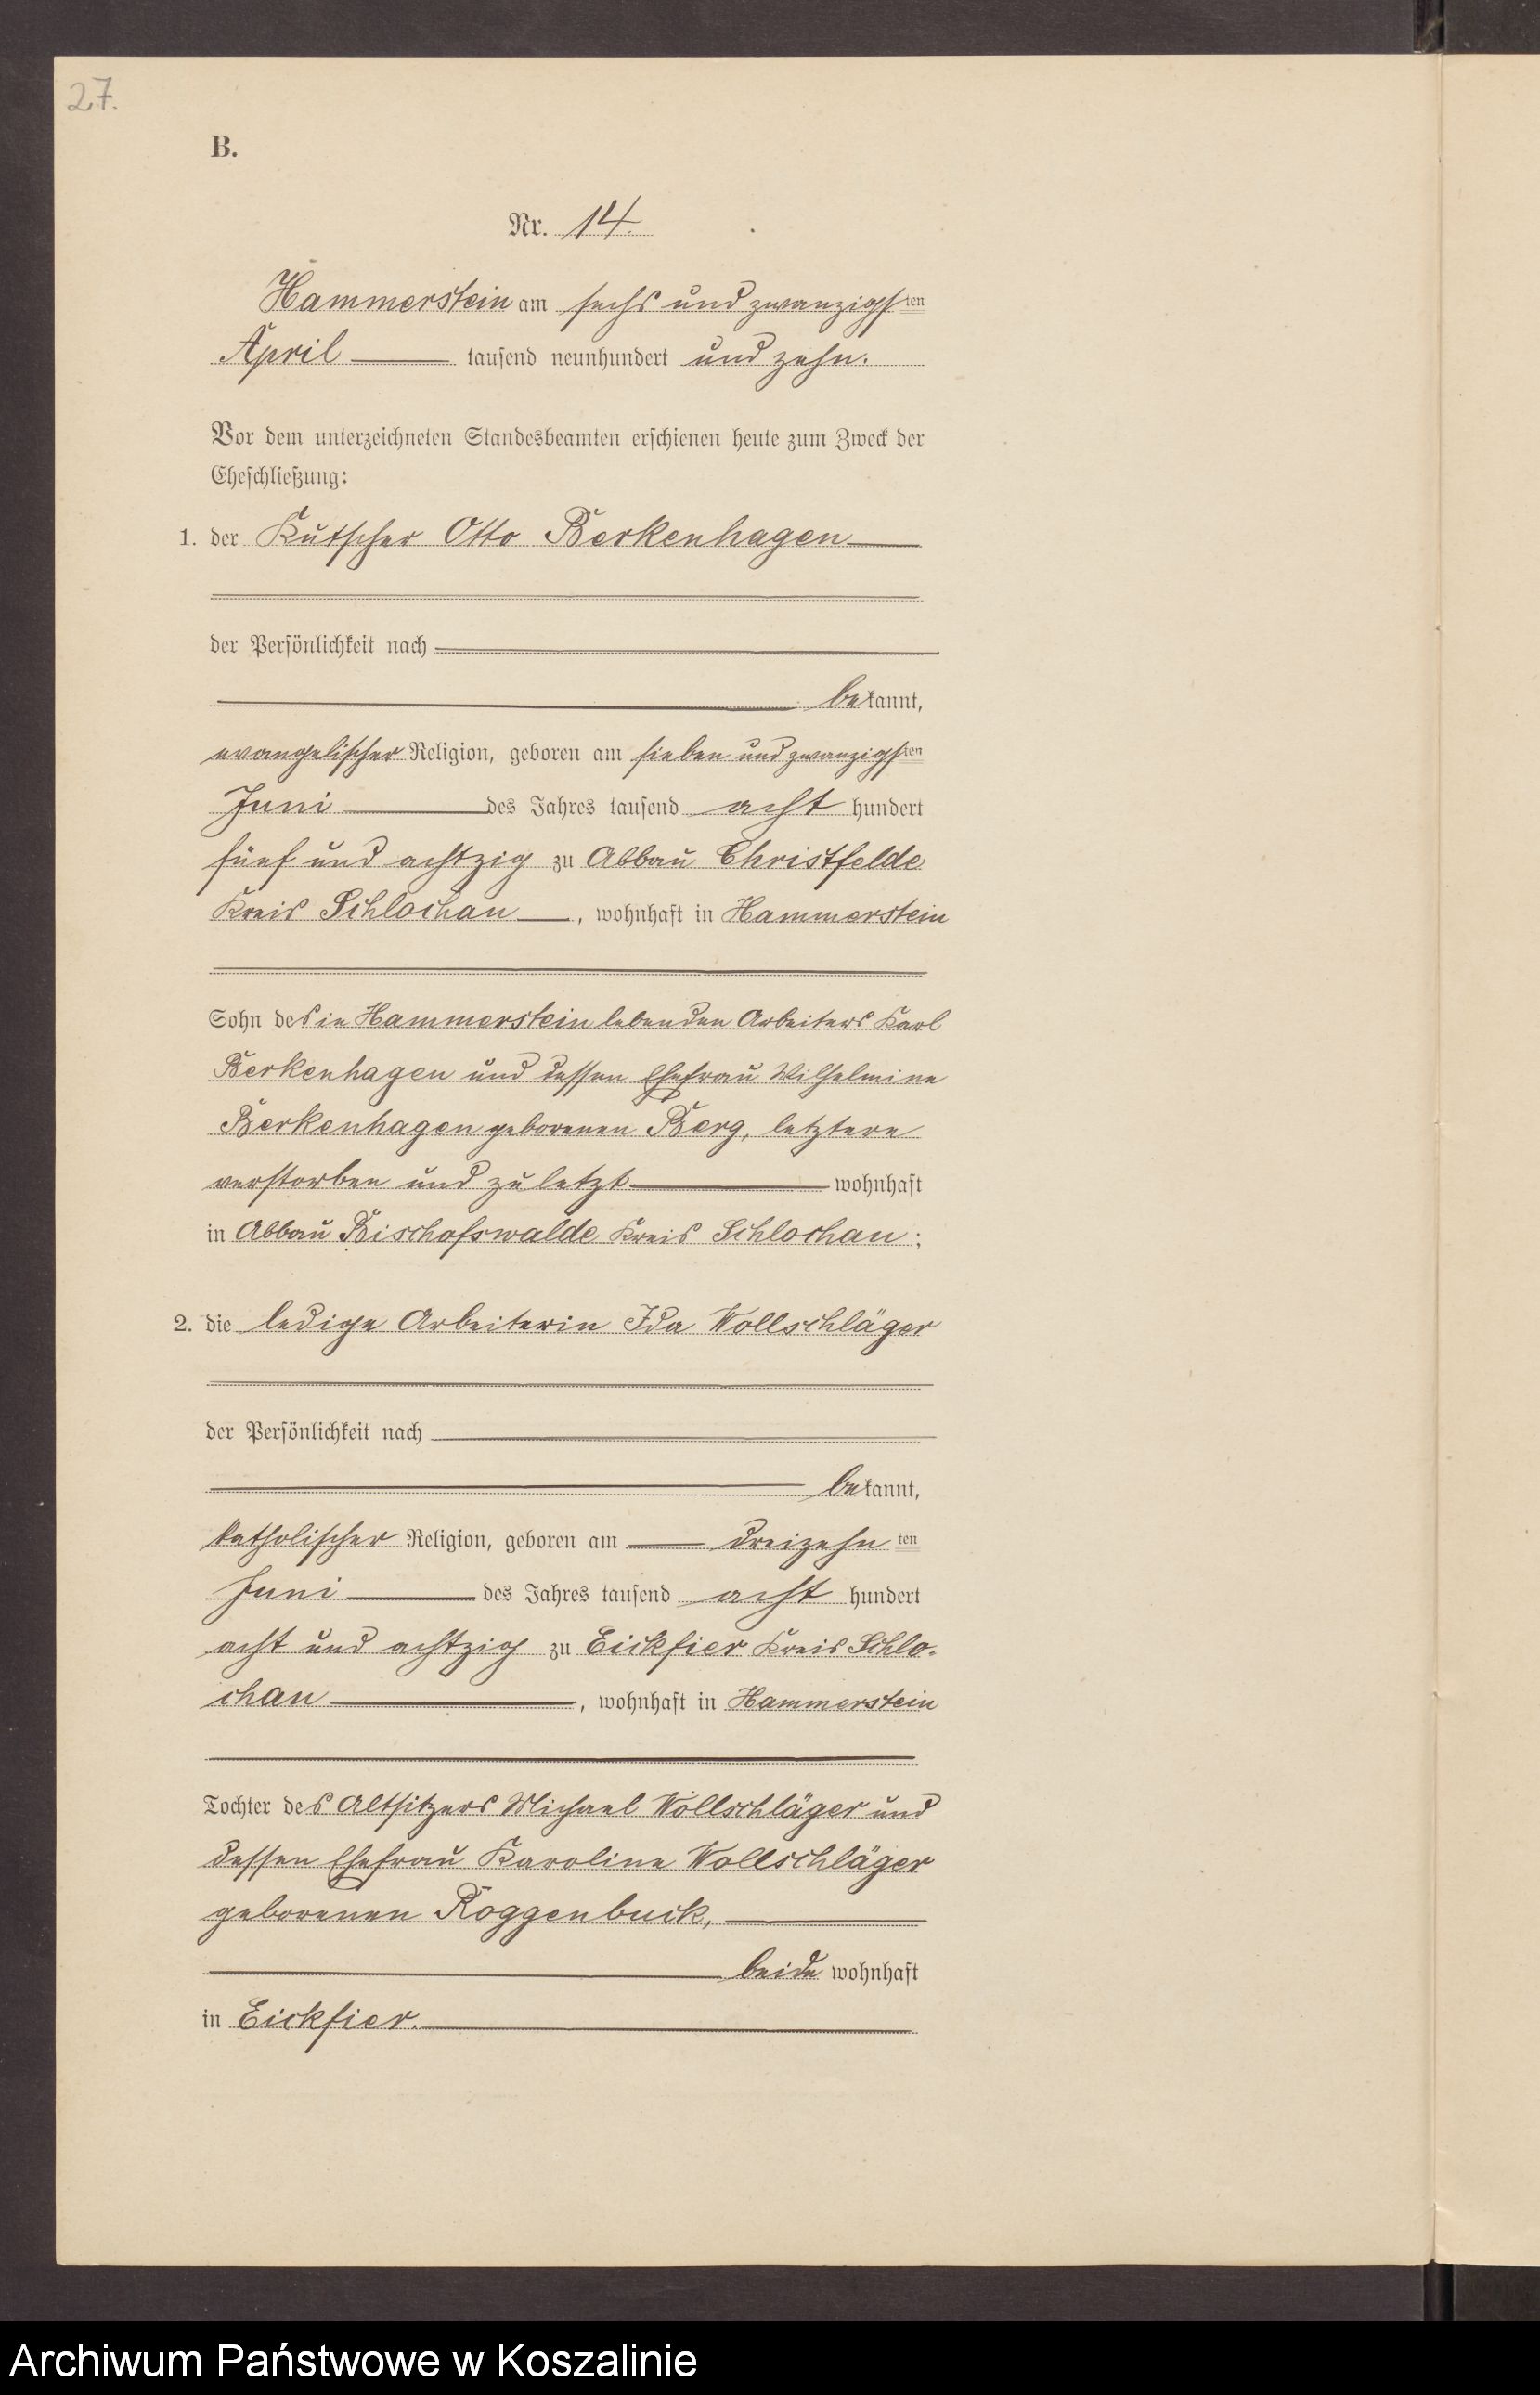 27.
B.
Nr. 14.
Hammerstein am sechs und zwanzigsten
April tausend neunhundert und zehn.
Vor dem unterzeichneten Standesbeamten erschienen heute zum Zweck der
Eheschließung:
1. der Kutscher Otto Berkenhagen
der Persönlichkeit nach
bekannt,
evangelischer Religion, geboren am sieben und zwanzigsten
Juni des Jahres tausend acht hundert
fünf und achtzig zu Abbau Christfelde
Kreis Schlochau, wohnhaft in Hammerstein
Sohn des in Hammerstein lebenden Arbeiters Karl
Berkenhagen und dessen Ehefrau Wilhelmine
Berkenhagen geborenen Berg, letztere
verstorben und zuletzt wohnhaft
in Abbau Bischofswalde Kreis Schlochau;
2. die ledige Arbeiterin Ida Wollschläger
der Persönlichkeit nach
bekannt,
katholischer Religion, geboren am dreizehn ten
Juni des Jahres tausend acht hundert
acht und achtzig zu Eickfier Kreis Schlo-
chau, wohnhaft in Hammerstein
Tochter des Altsitzers Michael Wollschläger und
dessen Ehefrau Karoline Wollschläger
geborenen Roggenbuck,
beide wohnhaft
in Eickfier.
Archiwum Państwowe w Koszalinie